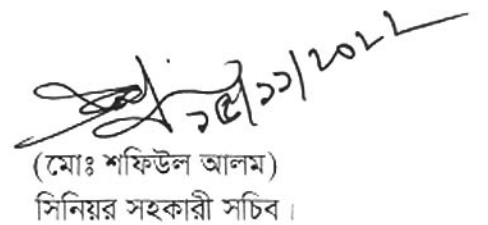 ১৫/১১/২০২২
(মোঃ শফিউল আলম)
সিনিয়র সহকারী সচিব।